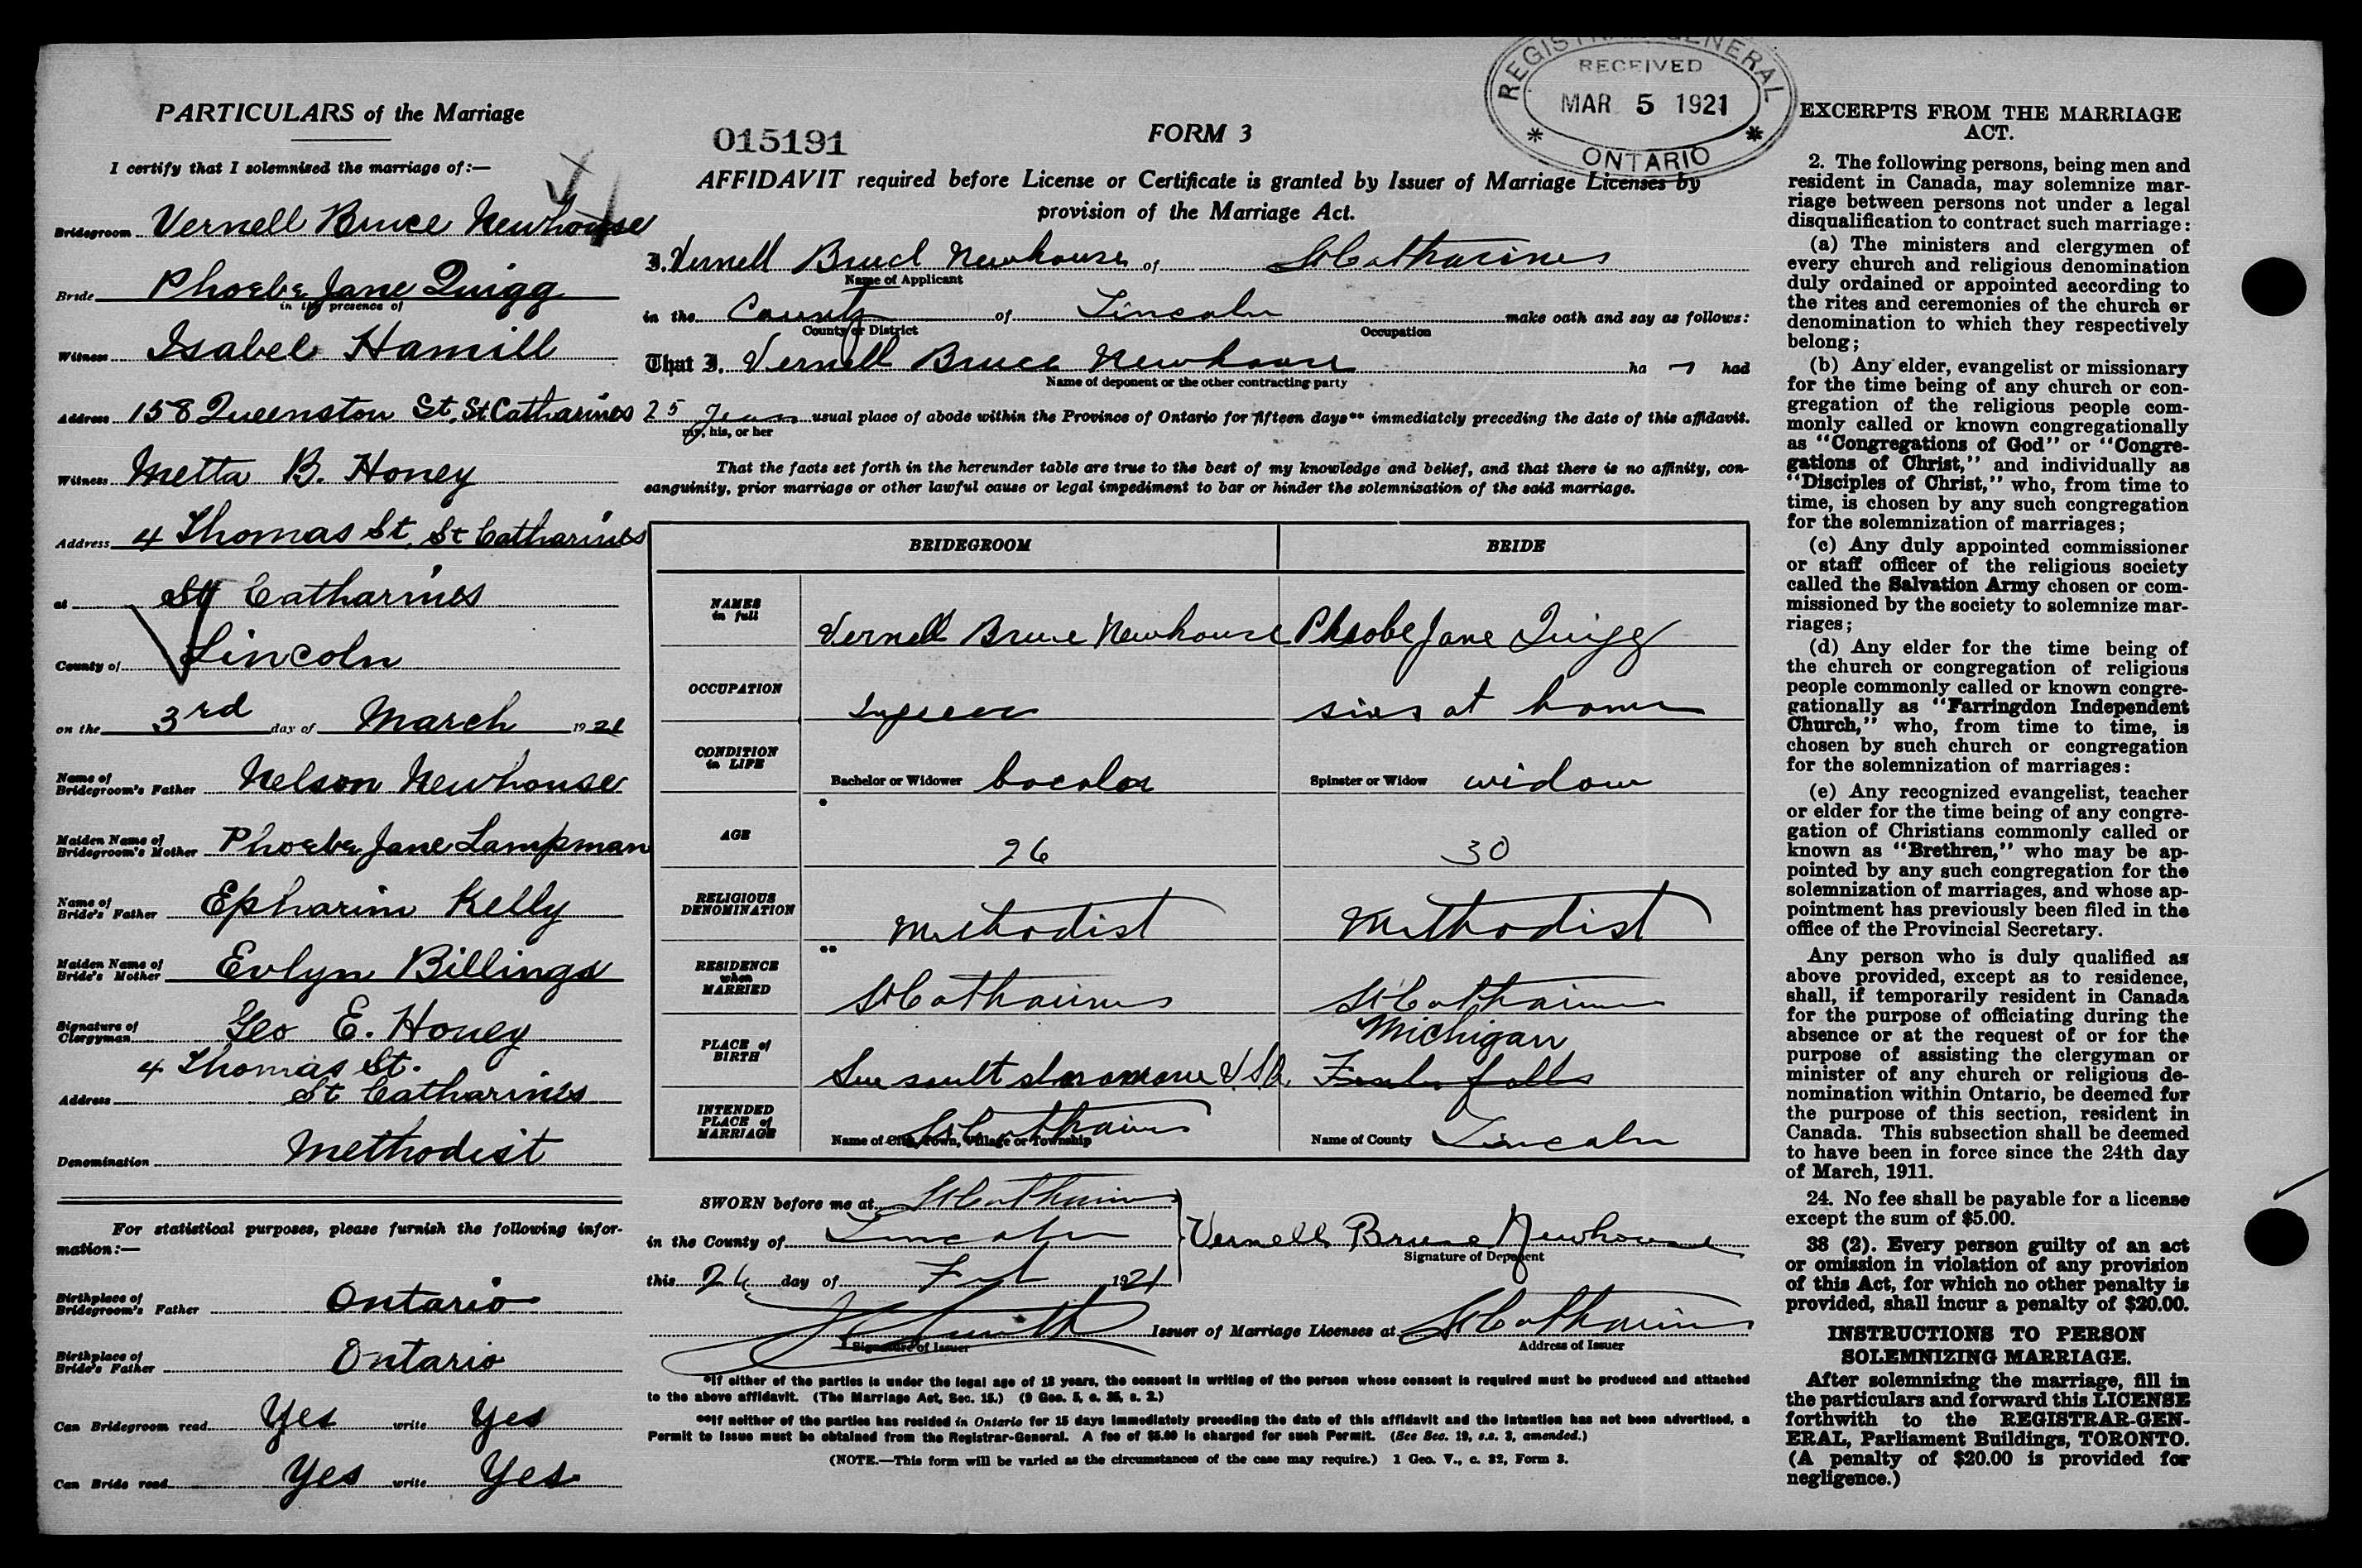 PARTICULARS of the Marriage
I certify that I solemnized the marriage of:—
Bridegroom Vernell Bruce Newhouse
Bride Phoebe Jane Quigg
in the presence of
Witness Isabel Hamill
Address 158 Queenston St, St. Catharines
Witness Metta B. Honey
Address 4 Thomas St, St Catharines
at St Catharines
County of Lincoln
on the 3rd day of March 1921
Name of
Bridegroom's Father Nelson Newhouse
Maiden Name of
Bridegroom's Mother Phoebe Jane Lampman
Name of
Bride's Father Epharim Kelly
Maiden Name of
Bride's Mother Evlyn Billings
Signature of
Clergyman Geo E. Honey
4 Thomas St.
Address St Catharines
Denomination Methodist
For statistical purposes, please furnish the following infor-
mation:—
Birthplace of
Bridegroom's Father Ontario
Birthplace of
Bride's Father Ontario
Can Bridegroom read Yes write Yes
Can Bride read Yes write Yes
REGISTRAR GENERAL
RECEIVED
MAR 5 1921
ONTARIO
015191
FORM 3
AFFIDAVIT required before License or Certificate is granted by Issuer of Marriage Licenses by
provision of the Marriage Act.
I, Vernell Bruce Newhouse of St Catharines
Name of Applicant
in the County of Lincoln make oath and say as follows:
County or District Occupation
That I, Vernell Bruce Newhouse ha had
Name of deponent or the other contracting party
25 years usual place of abode within the Province of Ontario for fifteen days** immediately preceding the date of this affidavit.
my, his, or her
That the facts set forth in the hereunder table are true to the best of my knowledge and belief, and that there is no affinity, con-
sanguinity, prior marriage or other lawful cause or legal impediment to bar or hinder the solemnization of the said marriage.
BRIDEGROOM BRIDE
NAMES
in full
Vernell Bruce Newhouse Pheobe Jane Quigg
OCCUPATION
at home
CONDITION
in LIFE
Bachelor or Widower bacalor Spinster or Widow widow
*
AGE
26 30
RELIGIOUS
DENOMINATION
Methodist Methodist
**
RESIDENCE
when
MARRIED
St Catharines St Catharines
PLACE of
BIRTH
Michigan
Sue sault U.S.A. falls
INTENDED
PLACE of
MARRIAGE
St Catharines
Name of City, Town, Village or Township Name of County Lincoln
SWORN before me at St Catharines
in the County of Lincoln
Vernell Bruce Newhouse
Signature of Deponent
this 26 day of Feb 1921
Smith Issuer of Marriage Licenses at St Catharines
Signature of Issuer Address of Issuer
*If either of the parties is under the legal age of 18 years, the consent in writing of the person whose consent is required must be produced and attached
to the above affidavit. (The Marriage Act, Sec. 15.) (9 Geo. 5, c. 35, s. 2.)
**If neither of the parties has resided in Ontario for 15 days immediately preceding the date of this affidavit and the intention has not been advertised, a
Permit to Issue must be obtained from the Registrar-General. A fee of $5.00 is charged for such Permit. (See Sec. 19, s.s. 3, amended.)
(NOTE.—This form will be varied as the circumstances of the case may require.) 1 Geo. V., c. 32, Form 3.
EXCERPTS FROM THE MARRIAGE
ACT.
2. The following persons, being men and
resident in Canada, may solemnize mar-
riage between persons not under a legal
disqualification to contract such marriage:
(a) The ministers and clergymen of
every church and religious denomination
duly ordained or appointed according to
the rites and ceremonies of the church or
denomination to which they respectively
belong;
(b) Any elder, evangelist or missionary
for the time being of any church or con-
gregation of the religious people com-
monly called or known congregationally
as "Congregations of God" or "Congre-
gations of Christ," and individually as
"Disciples of Christ," who, from time to
time, is chosen by any such congregation
for the solemnization of marriages;
(c) Any duly appointed commissioner
or staff officer of the religious society
called the Salvation Army chosen or com-
missioned by the society to solemnize mar-
riages;
(d) Any elder for the time being of
the church or congregation of religious
people commonly called or known congre-
gationally as "Farringdon Independent
Church," who, from time to time, is
chosen by such church or congregation
for the solemnization of marriages:
(e) Any recognized evangelist, teacher
or elder for the time being of any congre-
gation of Christians commonly called or
known as "Brethren," who may be ap-
pointed by any such congregation for the
solemnization of marriages, and whose ap-
pointment has previously been filed in the
office of the Provincial Secretary.
Any person who is duly qualified as
above provided, except as to residence,
shall, if temporarily resident in Canada
for the purpose of officiating during the
absence or at the request of or for the
purpose of assisting the clergyman or
minister of any church or religious de-
nomination within Ontario, be deemed for
the purpose of this section, resident in
Canada. This subsection shall be deemed
to have been in force since the 24th day
of March, 1911.
24. No fee shall be payable for a license
except the sum of $5.00.
38 (2). Every person guilty of an act
or omission in violation of any provision
of this Act, for which no other penalty is
provided, shall incur a penalty of $20.00.
INSTRUCTIONS TO PERSON
SOLEMNIZING MARRIAGE.
After solemnizing the marriage, fill in
the particulars and forward this LICENSE
forthwith to the REGISTRAR-GEN-
ERAL, Parliament Buildings, TORONTO.
(A penalty of $20.00 is provided for
negligence.)